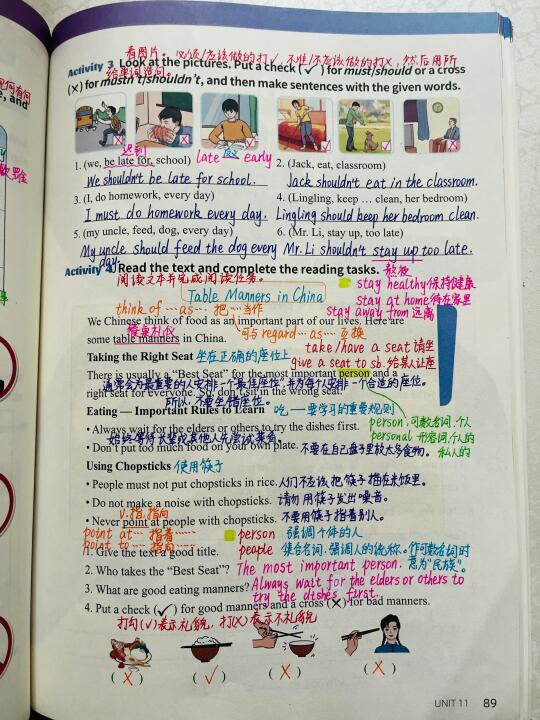 看图片，必须/应该做的打✓，不准/不应该做的打×，然后用所
Activity 3 Look at the pictures. Put a check (✓) for must/should or a cross
给单词造句。
(×) for mustn't/shouldn't, and then make sentences with the given words.
迟到
1. (we, be late for, school) late 反 early
2. (Jack, eat, classroom)
We shouldn't be late for school.
Jack shouldn't eat in the classroom.
3. (I, do homework, every day)
4. (Lingling, keep … clean, her bedroom)
I must do homework every day.
Lingling should keep her bedroom clean.
5. (my uncle, feed, dog, every day)
6. (Mr. Li, stay up, too late)
My uncle should feed the dog every day.
Mr. Li shouldn't stay up too late.
熬夜
Activity 4 Read the text and complete the reading tasks.
阅读文本并完成阅读任务。
stay healthy 保持健康
Table Manners in China
stay at home 待在家里
think of …as… 把…当作
stay away from 远离
We Chinese think of food as an important part of our lives. Here are
餐桌礼仪
可与 regard…as…互换
some table manners in China.
take/have a seat 请坐
Taking the Right Seat 坐在正确的座位上
give a seat to sb. 给某人让座
There is usually a "Best Seat" for the most important person and a
通常会为最重要的人安排一个最佳座位，并为每个人安排一个合适的座位。
right seat for everyone. So, don't sit in the wrong seat.
所以，不要坐错座位。
Eating — Important Rules to Learn 吃 — 要学习的重要规则
person, 可数名词，个人
• Always wait for the elders or others to try the dishes first.
personal 形容词，个人的
私人的
始终等待长辈或其他人先尝试菜肴。
• Don't put too much food on your own plate. 不要在自己盘子里放太多食物。
Using Chopsticks 使用筷子
• People must not put chopsticks in rice. 人们不应该把筷子插在米饭里。
• Do not make a noise with chopsticks. 请勿用筷子发出噪音。
v. 指，指向
• Never point at people with chopsticks. 不要用筷子指着别人。
point at… 指着……
person 强调个体的人
point to… 指向……
people 集合名词，强调人的统称。作可数名词时
意为"民族"。
1. Give the text a good title.
2. Who takes the "Best Seat"? The most important person.
3. What are good eating manners? Always wait for the elders or others to
try the dishes first.
4. Put a check (✓) for good manners and a cross (×) for bad manners.
打勾(✓)表示礼貌，打(×)表示不礼貌
(×) (✓) (×) (×)
UNIT 11 89